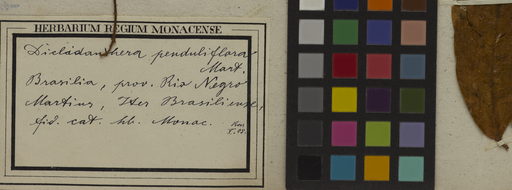 HERBARIUM REGIUM MONACENSE
Dicladanthera penduliflora
Mart.
Brasilia, prov. Rio Negro
Martius, Iter Brasiliense,
fid. cat. hb. Monac.